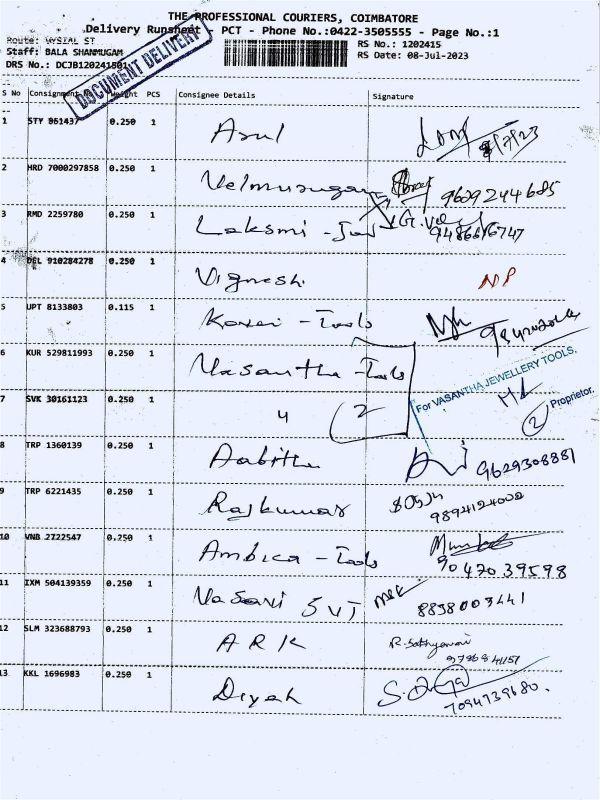 THE PROFESSIONAL COURIERS, COIMBATORE
Delivery Runsheet - PCT - Phone No.:0422-3505555 - Page No.:1
Route: MYSIAL ST
RS No.: 1202415
Staff: BALA SHANMUGAM
RS Date: 08-Jul-2023
DRS No.: DCJB120241501
DOCUMENT DELIVERY
S No Consignment No Weight PCS Consignee Details Signature
1 STY 961437 0.250 1 Arul
2 HRD 7000297858 0.250 1 Velmurugan 9629244685
3 RMD 2259780 0.250 1 Laksmi - G.Vel 9486616747
4 DEL 910284278 0.250 1 Vignesh NP
5 UPT 8133803 0.115 1 Kovai - Tools
6 KUR 529811993 0.250 1 Vasantha - Tools
For VASANTHA JEWELLERY TOOLS,
7 SVK 30161123 0.250 1 4 2
2 Proprietor.
8 TRP 1360139 0.250 1 Aabitha 9629308881
9 TRP 6221435 0.250 1 Rajkumar 9894124002
10 VNB 2722547 0.250 1 Ambica - Tools 9042039598
11 IXM 504139359 0.250 1 Vasavi 8838003441
12 SLM 323688793 0.250 1 ARK R. Sathyavani
13 KKL 1696983 0.250 1 Diyah 7094739680.